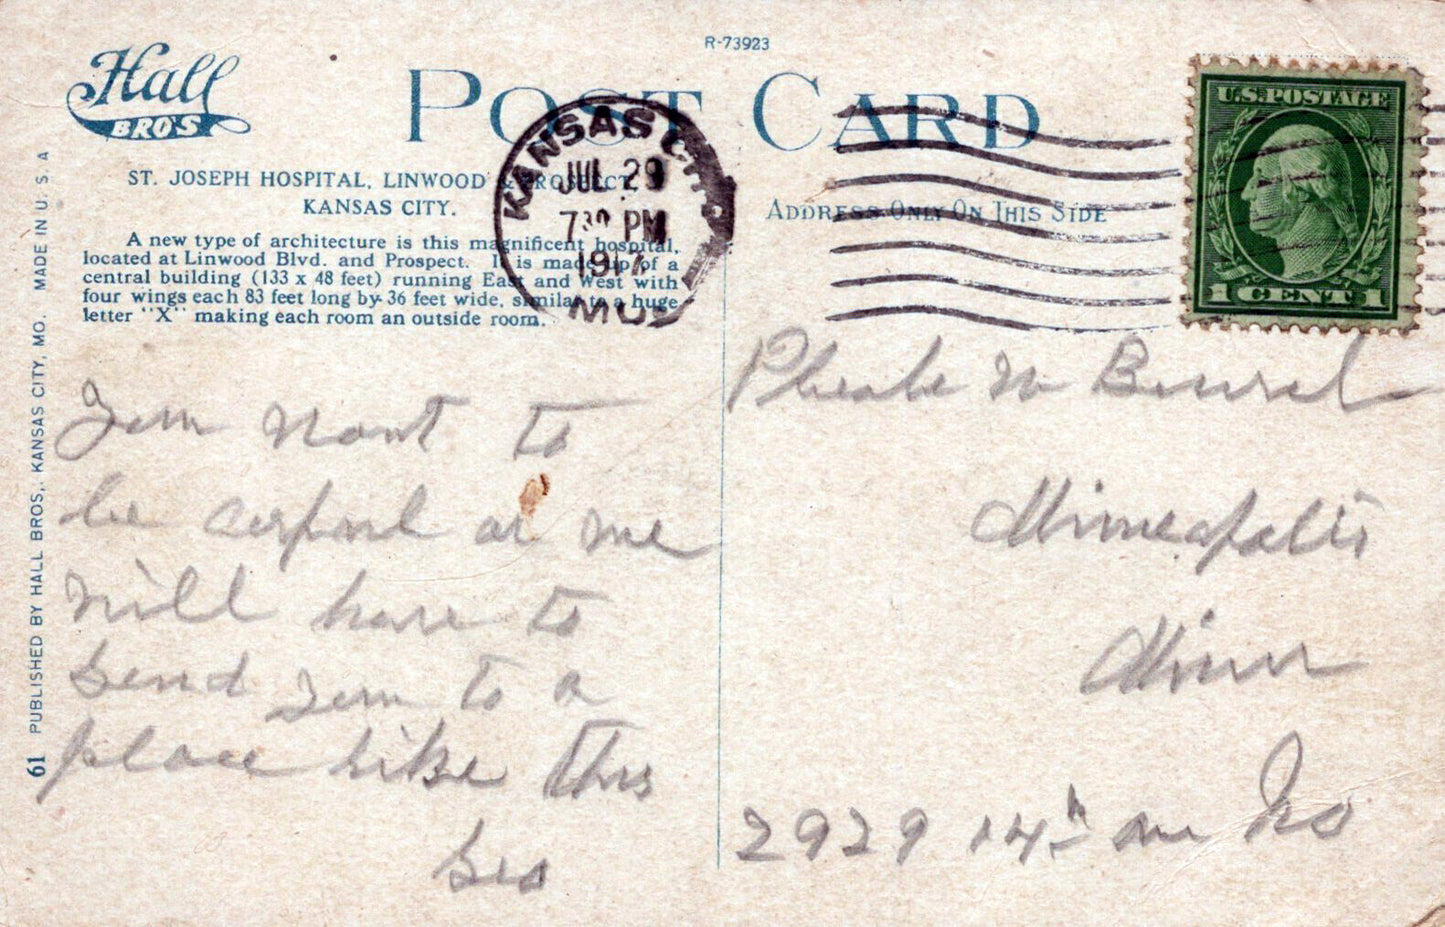 R-73923
Hall
BRO'S
POST CARD
ST. JOSEPH HOSPITAL, LINWOOD & PROSPECT,
KANSAS CITY.
A new type of architecture is this magnificent hospital,
located at Linwood Blvd. and Prospect. It is made up of a
central building (133 x 48 feet) running East and West with
four wings each 83 feet long by 36 feet wide, similar to a huge
letter "X" making each room an outside room.
KANSAS CITY
JUL 29
7 PM
191
MO.
ADDRESS ONLY ON THIS SIDE
U.S. POSTAGE
1 CENT 1
61 PUBLISHED BY HALL BROS., KANSAS CITY, MO. MADE IN U. S. A
to
be or me
will have to
send to a
place like this
Sis
Minneapolis
Minn
2929 14th Ave So